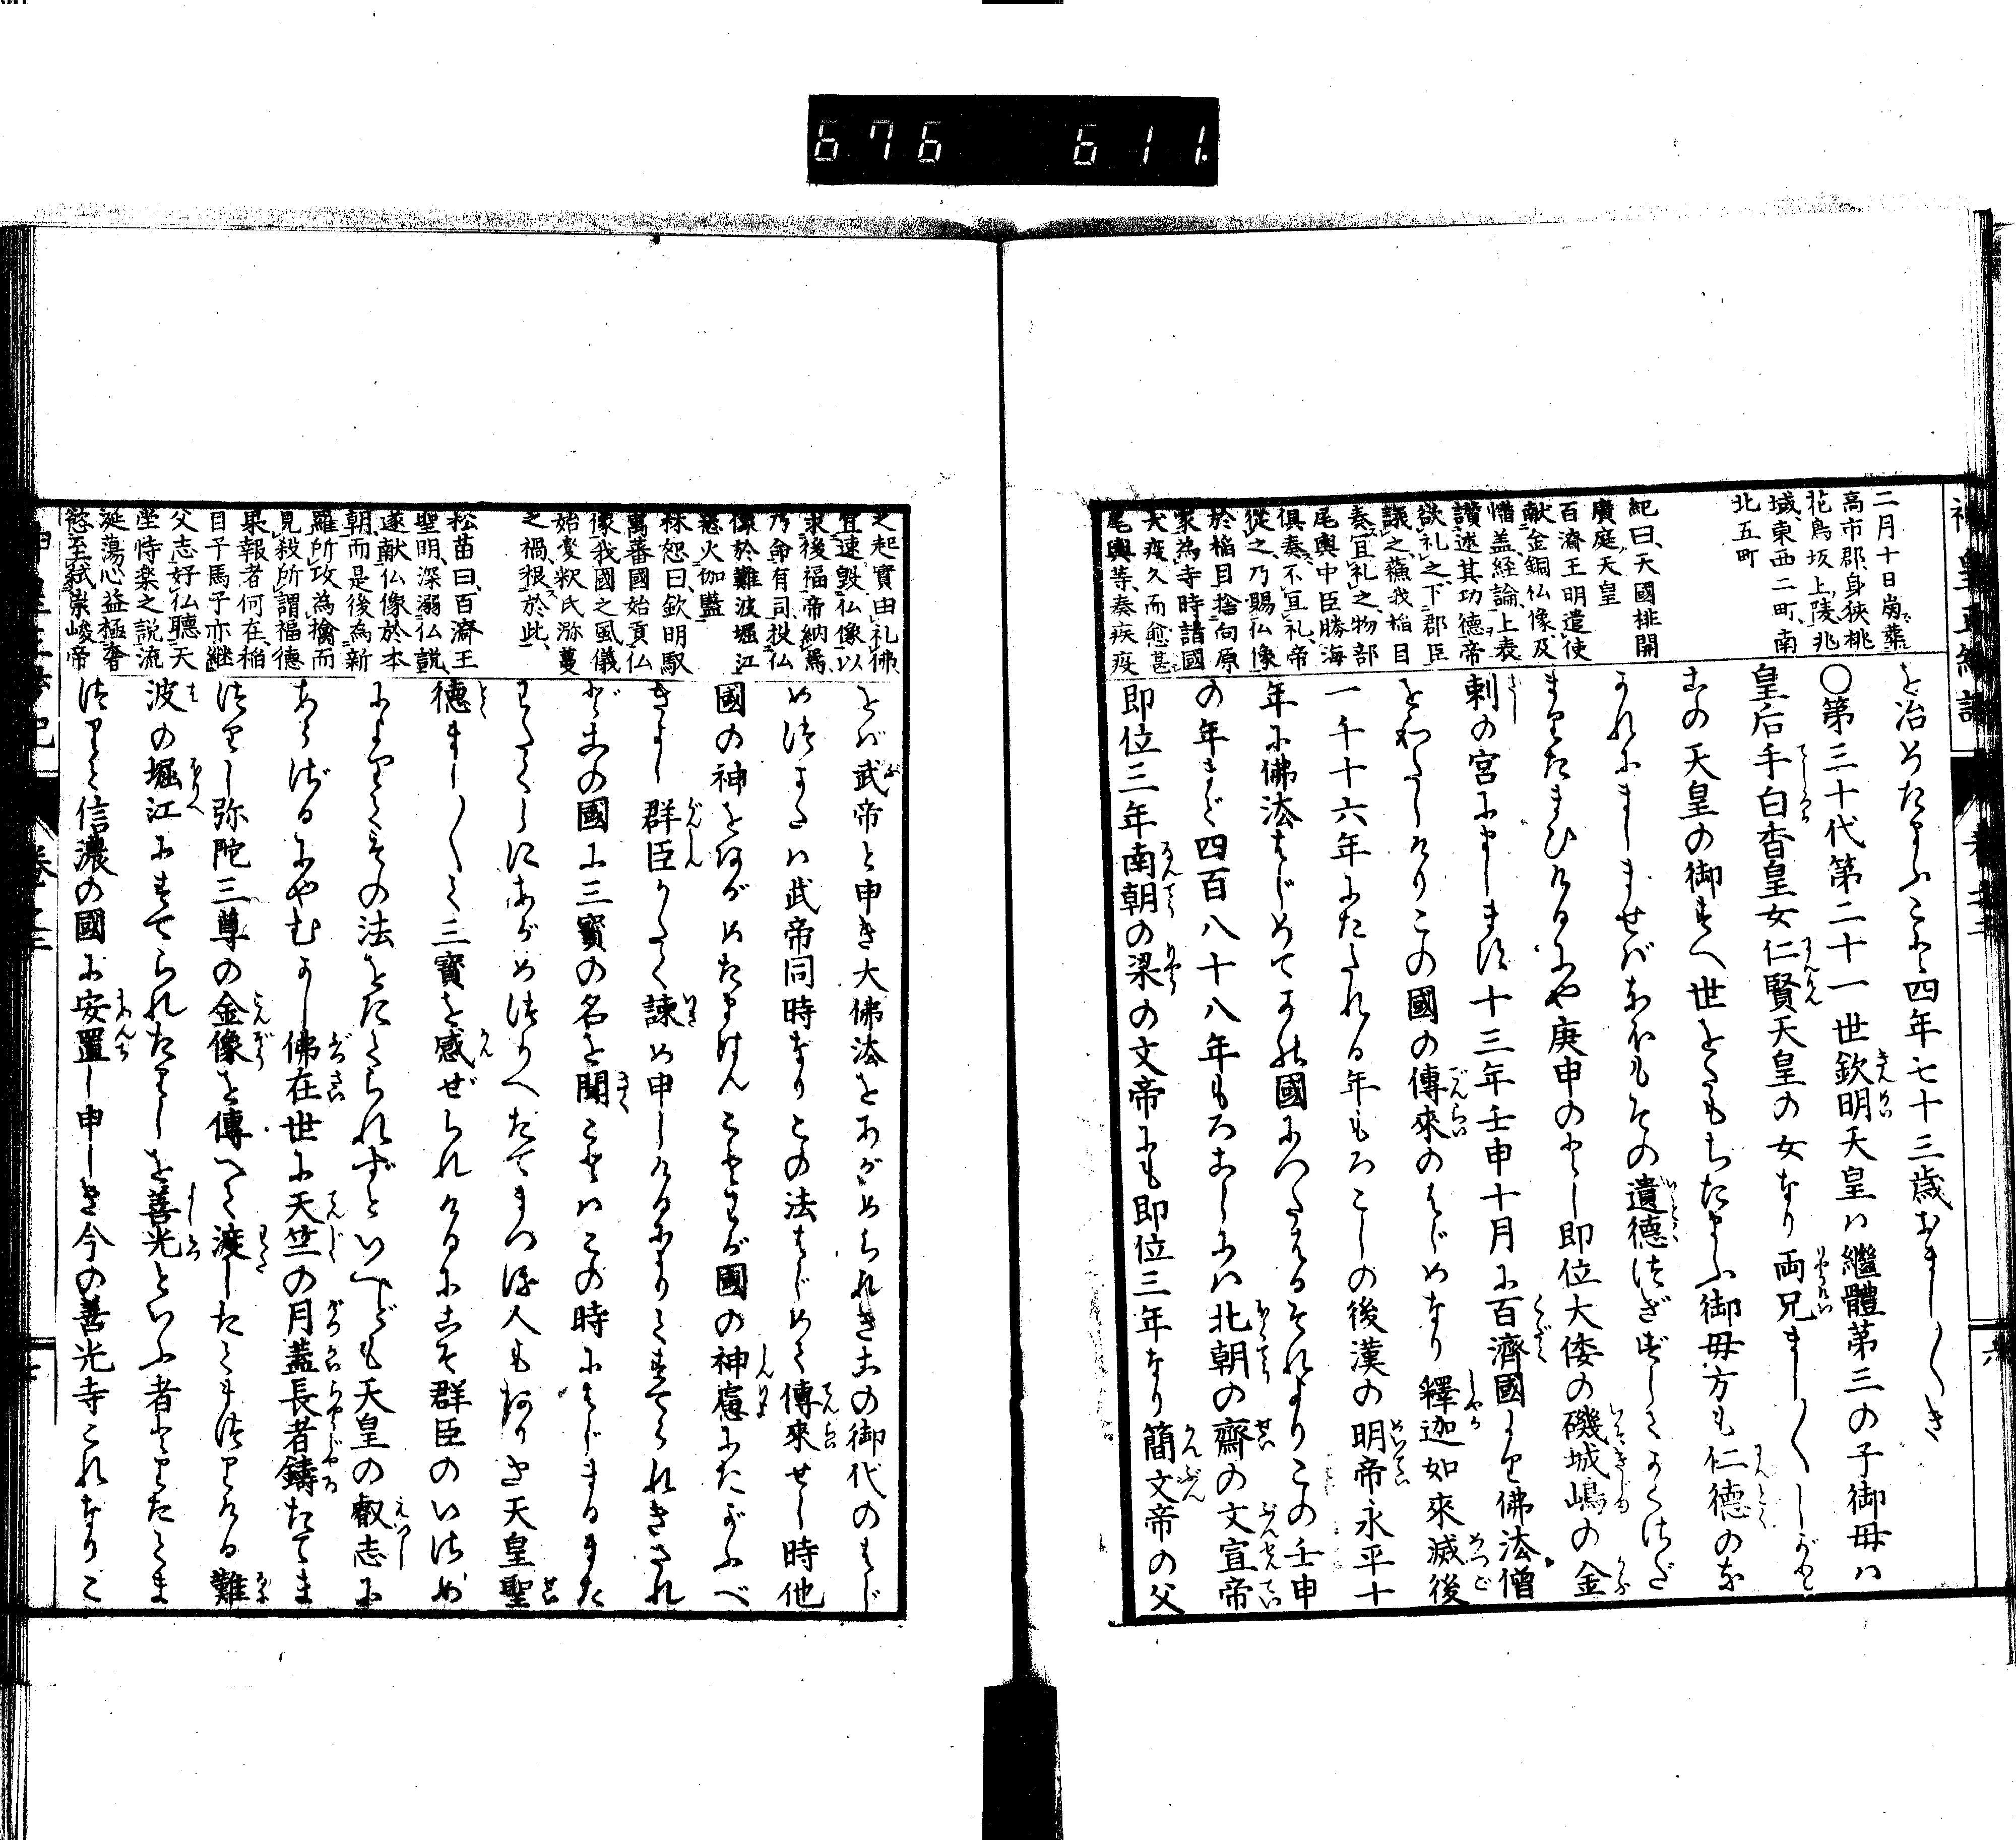 676 611.
二月十日崩葬
高市郡身狹桃
花鳥坂上陵兆
域東西二町南
北五町
紀曰天國排開
廣庭天皇
百濟王明遣使
献金銅仏像及
幡盖経論上表
讃述其功德帝
欲礼之下郡臣
議之蘓我稲目
奏宜礼之物部
尾輿中臣勝海
俱奏不宜礼帝
從之乃賜仏像
於稲目捨向原
家為寺時諸國
大疫久而愈甚
尾輿等奏疾疫
を治めたまふこと四年七十三歳おまし〱き
〇第三十代第二十一世欽明天皇ハ繼體第三の子御母ハ
皇后手白香皇女仁賢天皇の女なり両兄まし〱しかど
この天皇の御すへ世をたもちたまふ御母方も仁德のな
かれにましませばなほもその遺德つきずしてかくはだ
まりたまひけるにや庚申のとし即位大倭の磯城嶋の金
刺の宮にまします十三年壬申十月に百濟國より佛法僧
をわたしけりこの國の傳來のはじめなり釋迦如來滅後
一千十六年にあたれる年もろこしの後漢の明帝永平十
年に佛法はじめてかの國につたはるそれよりこの壬申
の年まで四百八十八年もろこしにハ北朝の齋の文宣帝
即位三年南朝の梁の文帝にも即位三年なり簡文帝の父
之起實由礼佛
宜速毀仏像以
求後福帝納焉
乃命有司投仏
像於難波堀江
慈火伽藍
林恕曰欽明馭
寓蕃國始貢仏
像我國之風儀
始変釈氏瀰蔓
之禍根於此
松苗曰百濟王
聖明深溺仏説
遂献仏像於本
朝而是後為新
羅所攻為擒而
見殺所謂福德
果報者何在稲
目子馬子亦継
父志好仏聴天
堂恃楽之説流
涎蕩心益極奢
慾至弑崇峻帝
をバ武帝と申き大佛法をあがめられきこの御代のはじ
めつかたハ武帝同時なりこの法はじめて傳來せし時他
國の神をあがめたまはんことわが國の神慮にたがふべ
きよし群臣かたく諫め申しけるによりてすてられきされ
どこの國に三寳の名を聞ことハこの時にはじまるまた
わたくしにあがめつかへたてまつる人もありき天皇聖
德まし〱て三寳を感ぜられけるにこそ群臣のいさめ
によりてその法をたてられずといへども天皇の叡志に
あらざるにやむかし佛在世に天竺の月蓋長者鑄たてま
つりし弥陀三尊の金像を傳へて渡したてまつりける難
波の堀江にすてられたりしを善光といふ者とりたてま
つりて信濃の國に安置し申しき今の善光寺これなりこ